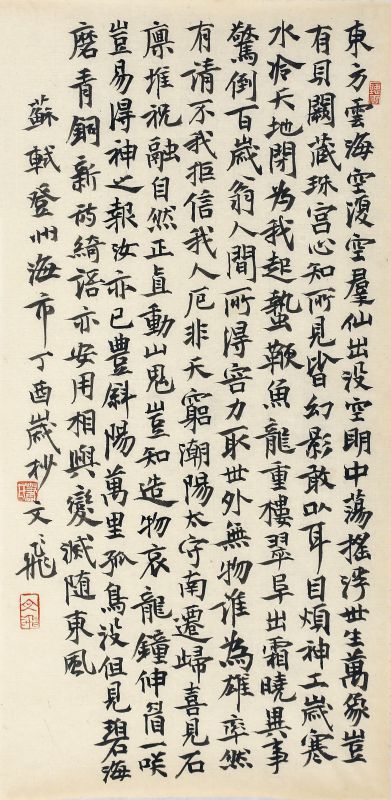 東方雲海空復空羣仙出没空明中蕩搖浮世生萬象豈
有貝闕藏珠宮心知所見皆幻影敢以耳目煩神工歲寒
水冷天地閉為我起蟄鞭魚龍重樓翠阜出霜曉異事
驚倒百歲翁人間所得容力取世外無物誰為雄率然
有請不我拒信我人厄非天窮潮陽太守南遷歸喜見石
廩堆祝融自然正直動山鬼豈知造物哀龍鐘伸眉一咲
豈易得神之報汝亦已豐斜陽萬里孤鳥没但見碧海
磨青銅新詩綺語亦安用相與變滅隨東風
蘇軾登州海市丁酉歲杪文飛